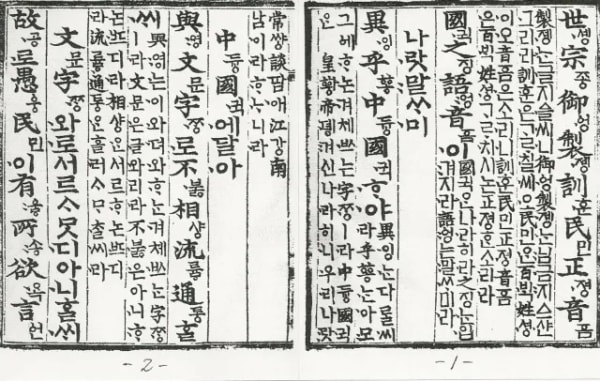 世솅宗종御엉製졩訓훈民민正졍音ᅙᅳᆷ
製졩는글지ᅀᅳᆯ씨니御엉製졩는님금지ᅀᅳ샨
그리라訓훈은ᄀᆞᄅᆞ칠씨오民민ᄋᆞᆫ百ᄇᆡᆨ姓셩
이오音ᅙᅳᆷ은소리니訓훈民민正졍音ᅙᅳᆷ
은百ᄇᆡᆨ姓셩ᄀᆞᄅᆞ치시논正졍ᄒᆞᆫ소리라
國귁之징語ᅌᅥᆼ音ᅙᅳᆷ이
國귁ᄋᆞᆫ나라히라之징ᄂᆞᆫ입
겨지라語ᅌᅥᆼ는말ᄊᆞ미라
나랏말ᄊᆞ미
異잉乎ᅘᅩᆼ中듕國귁ᄒᆞ야
異잉ᄂᆞᆫ다ᄅᆞᆯ씨
라乎ᅘᅩᆼᄂᆞᆫ아모
그ᅌᅦᄒᆞ논겨체ᄡᅳ는字ᄍᆞᆼㅣ라中듕國귁
ᄋᆞᆫ皇ᅘᅪᆼ帝뎽겨신나라히니우리나랏
-1-
常썅談땀애江강南
남이라ᄒᆞᄂᆞ니라
中듕國귁에달아
與영文문字ᄍᆞᆼ로不부ᇙ相샹流류ᇢ通통ᄒᆞᆯ
ᄊᆡ
與영는이와뎌와ᄒᆞ는겨체ᄡᅳ는字ᄍᆞᆼ
ㅣ라文문은글와리라不부ᇙ은아니ᄒᆞ
논ᄠᅳ디라相샹ᄋᆞᆫ서르ᄒᆞ논ᄠᅳ디
라流류ᇢ通통ᄋᆞᆫ흘러ᄉᆞᄆᆞᄎᆞᆯ씨라
文문字ᄍᆞᆼ와로서르ᄉᆞᄆᆞᆺ디아니ᄒᆞᆯᄊᆡ
故공로愚ᅌᅮᆼ民민이有ᅌᅮᇢ所송欲욕言언
-2-